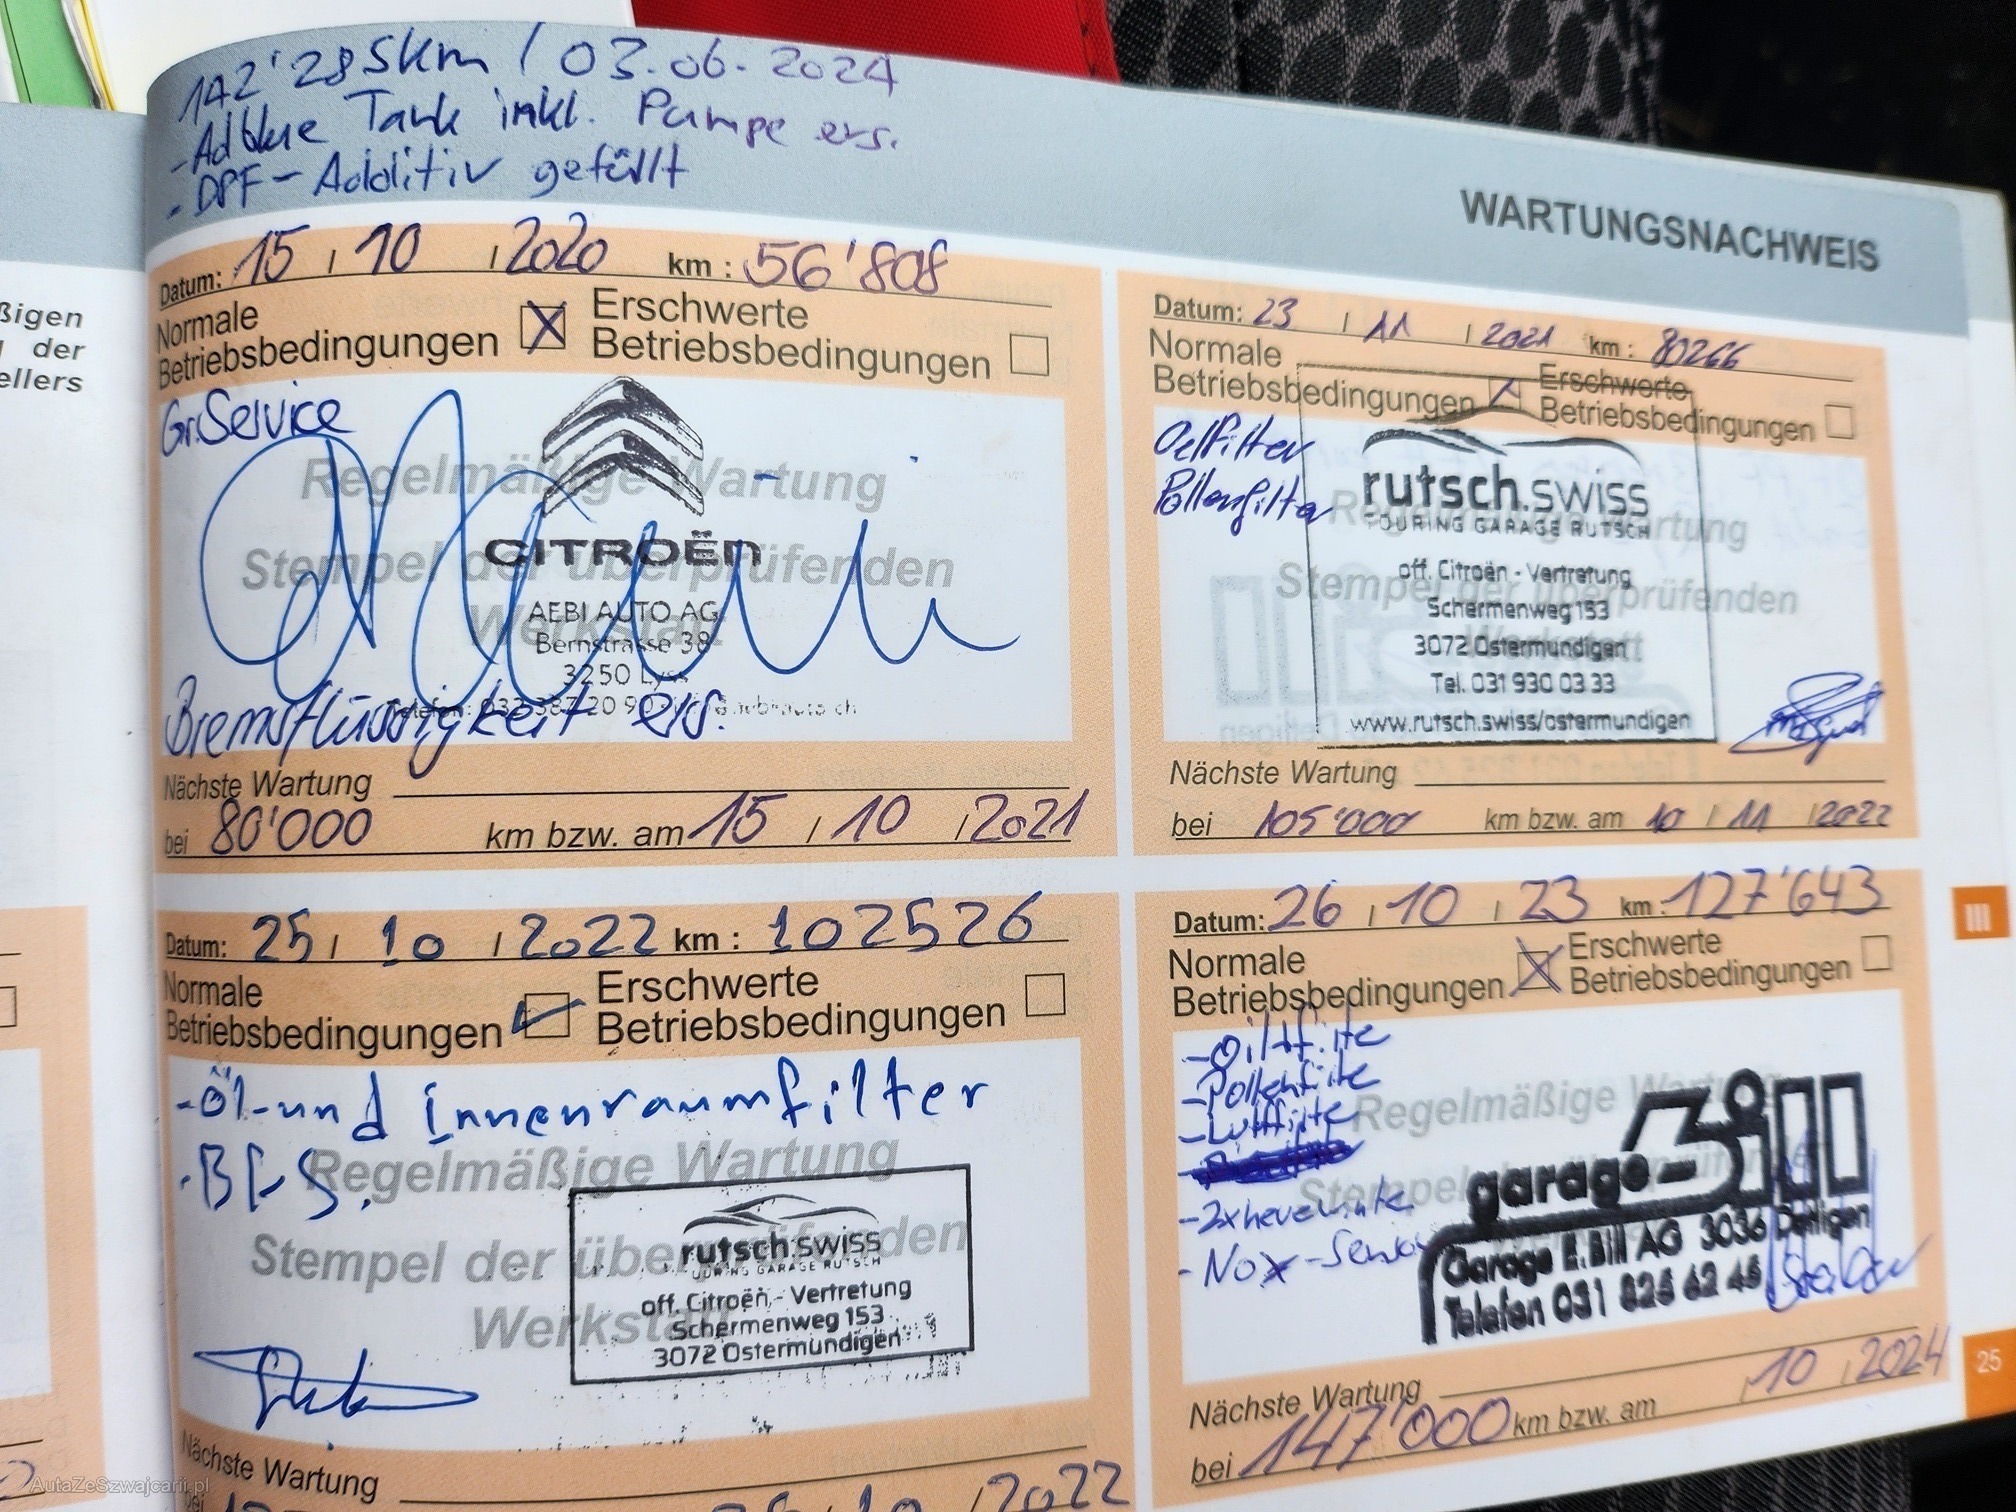 142'285km / 03.06.2024
- Adblue Tank inkl. Pumpe ers.
- DPF- Additiv gefüllt
WARTUNGSNACHWEIS
ßigen
der
ellers
Datum: 15 / 10 / 2020 km : 56'808
Normale Betriebsbedingungen
Erschwerte Betriebsbedingungen
Gr.Service
Regelmäßige Wartung
Stempel der überprüfenden
Werkstatt
CITROËN
AEBI AUTO AG
Bernstrasse 38
3250 Lyss
Bremsflüssigkeit ers.
Nächste Wartung
bei 80'000 km bzw. am 15 / 10 / 2021
Datum: 23 / 11 / 2021 km : 80266
Normale Betriebsbedingungen
Erschwerte Betriebsbedingungen
Oelfilter
Pollenfilter
Regelmäßige Wartung
Stempel der überprüfenden
Werkstatt
rutsch.swiss
TOURING GARAGE RUTSCH
off. Citroën - Vertretung
Schermenweg 153
3072 Ostermundigen
Tel. 031 930 03 33
www.rutsch.swiss/ostermundigen
Nächste Wartung
bei 105'000 km bzw. am 10 / 11 / 2022
Datum: 25 / 10 / 2022 km : 102526
Normale Betriebsbedingungen
Erschwerte Betriebsbedingungen
- Öl- und Innenraumfilter
Regelmäßige Wartung
Stempel der überprüfenden
Werkstatt
rutsch.swiss
TOURING GARAGE RUTSCH
off. Citroën - Vertretung
Schermenweg 153
3072 Ostermundigen
Nächste Wartung
bei / 10 / 2022
Datum: 26 / 10 / 23 km : 127'643
Normale Betriebsbedingungen
Erschwerte Betriebsbedingungen
- Pollenfilte
- Luftfilte
- NOx -Sensor
Regelmäßige Wartung
garage-Bill
Garage E.Bill AG 3036 Detligen
Telefon 031 825 62 45
Nächste Wartung
bei 147'000 km bzw. am / 10 / 2024
III
25
AutaZeSzwajcarii.pl